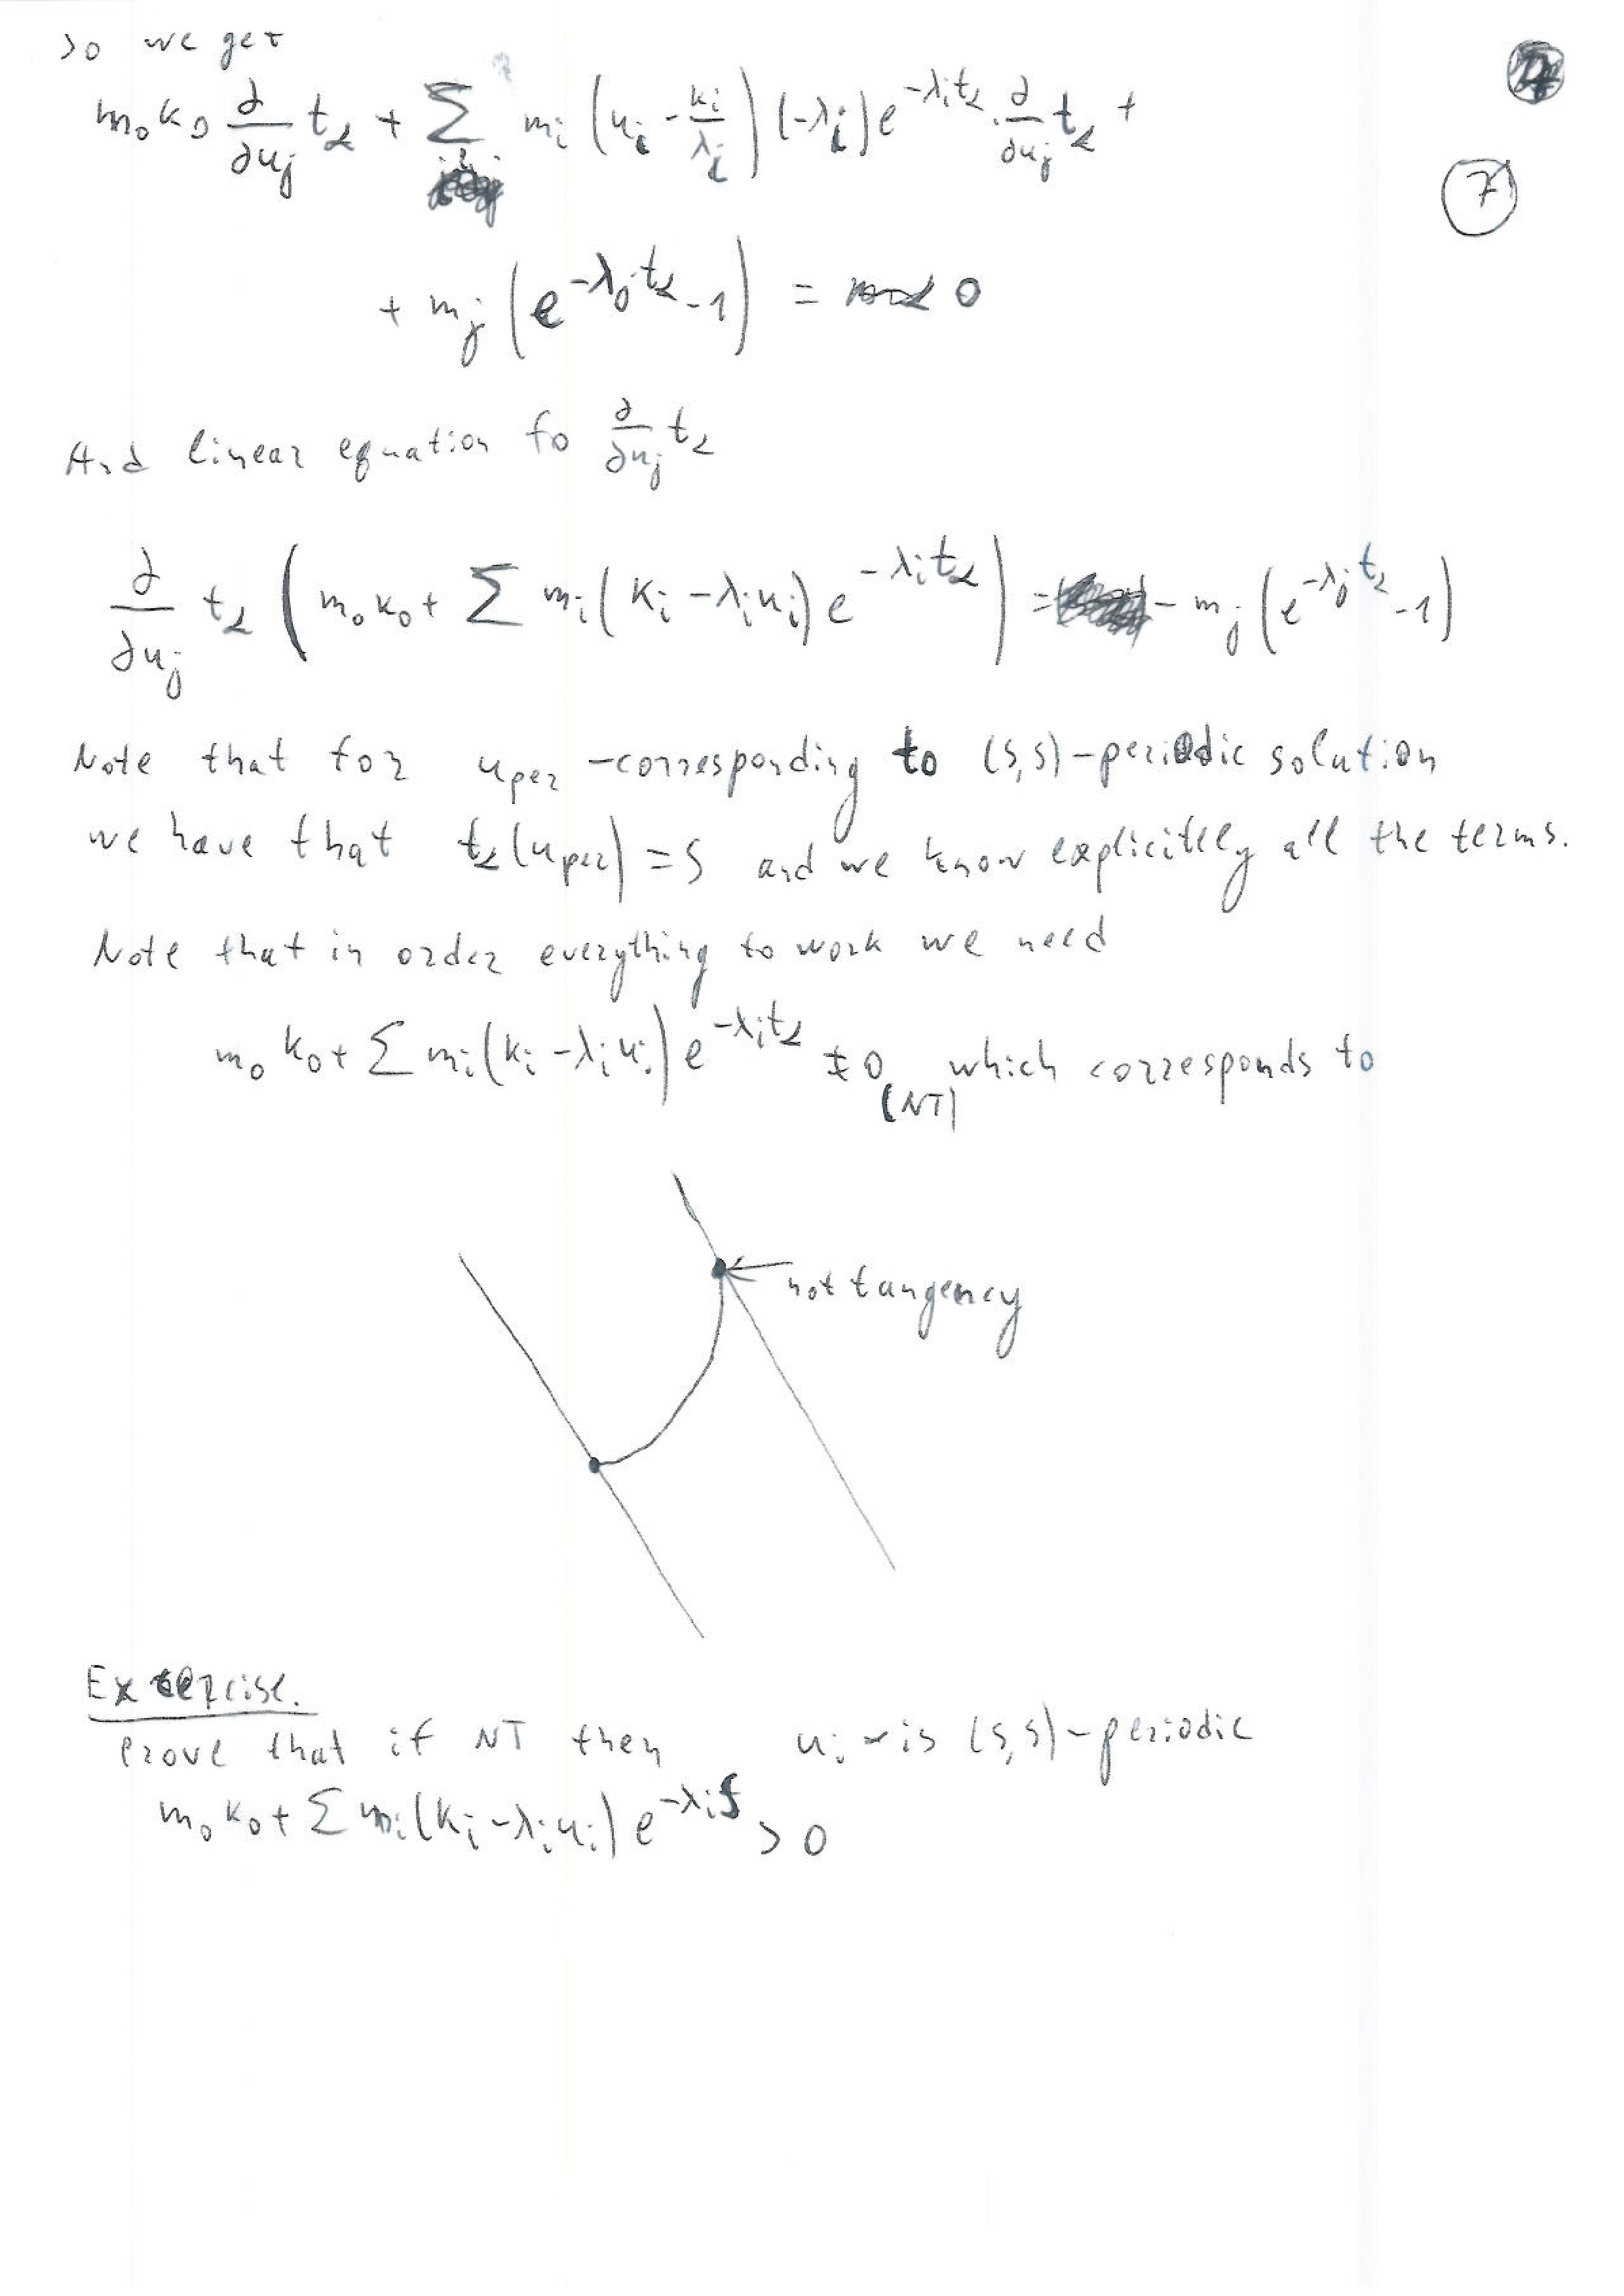 so we get
m₀k₀ ∂/∂uⱼ t₂ + Σ mᵢ (uᵢ - kᵢ/λᵢ) (-λᵢ) e^{-λᵢt₂} · ∂/∂uⱼ t₂ +
7
+ mⱼ (e^{-λⱼt₂} - 1) = 0
And linear equation fo ∂/∂uⱼ t₂
∂/∂uⱼ t₂ (m₀k₀ + Σ mᵢ(kᵢ - λᵢuᵢ) e^{-λᵢt₂}) = - mⱼ (e^{-λⱼt₂} - 1)
Note that for u_per - corresponding to (s,s)-periodic solution
we have that t₂(u_per) = s and we know explicitely all the terms.
Note that in order everything to work we need
m₀k₀ + Σ mᵢ(kᵢ - λᵢuᵢ) e^{-λᵢt₂} ≠ 0 (NT) which corresponds to
not tangency
Exercise.
Prove that if NT then uᵢ - is (s,s)-periodic
m₀k₀ + Σ mᵢ(kᵢ - λᵢuᵢ) e^{-λᵢs} > 0